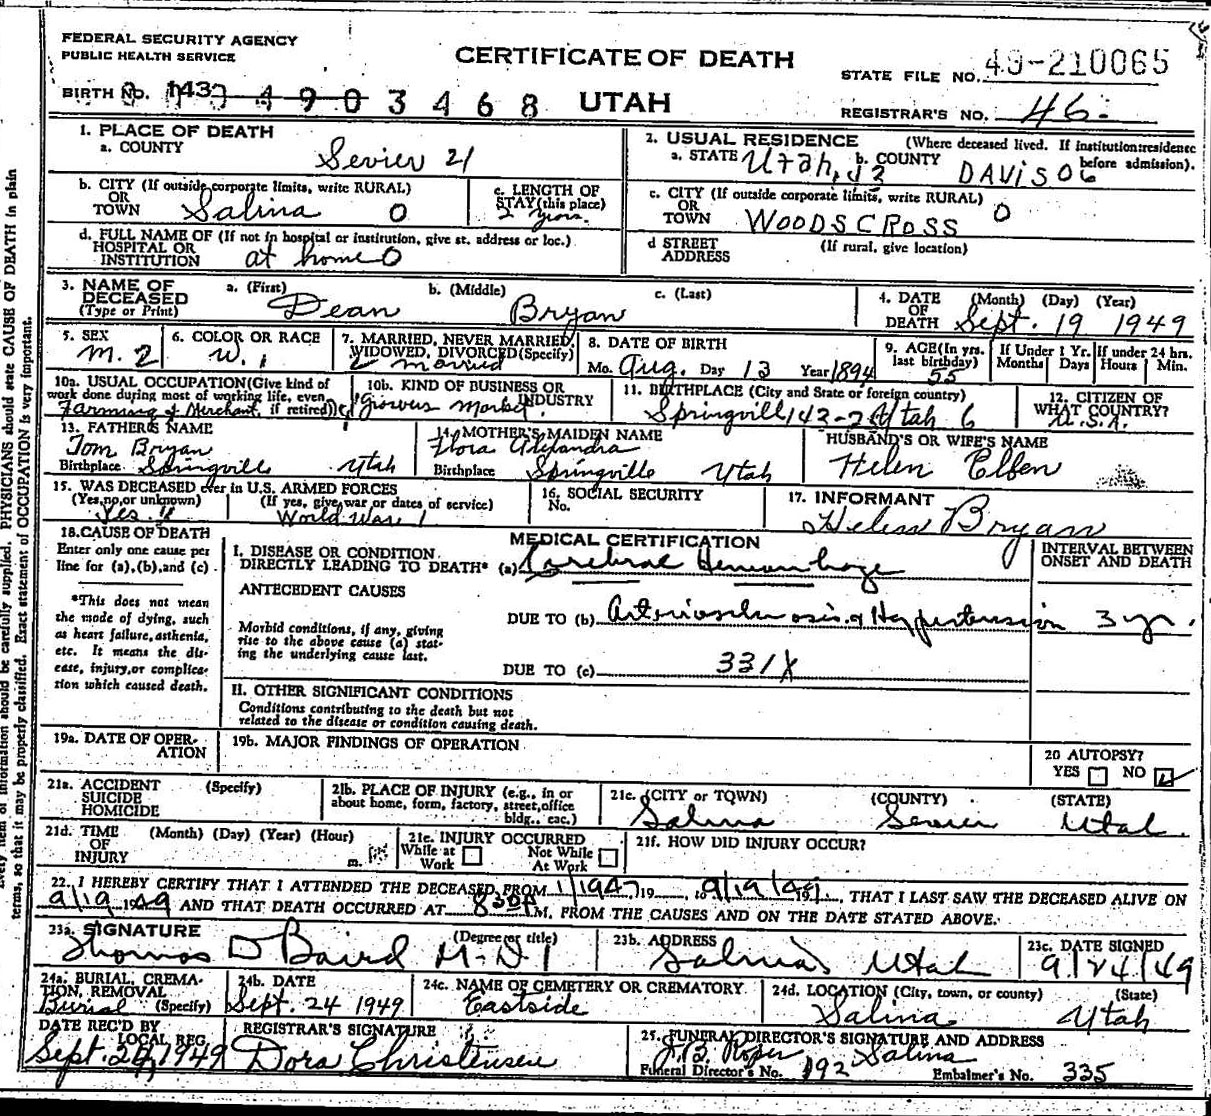 FEDERAL SECURITY AGENCY
PUBLIC HEALTH SERVICE
CERTIFICATE OF DEATH
STATE FILE NO. 49-210065
BIRTH NO. 143 4903468 UTAH
REGISTRAR'S NO. 46
1. PLACE OF DEATH
a. COUNTY
Sevier 21
2. USUAL RESIDENCE (Where deceased lived. If institution:residence before admission).
a. STATE Utah b. COUNTY DAVIS 06
b. CITY (If outside corporate limits, write RURAL)
OR
TOWN Salina 0
c. LENGTH OF
STAY (this place)
2 years
c. CITY (If outside corporate limits, write RURAL)
OR
TOWN WOODS CROSS 0
d. FULL NAME OF (If not in hospital or institution, give st. address or loc.)
HOSPITAL OR
INSTITUTION at home 0
d STREET (If rural, give location)
ADDRESS
3. NAME OF
DECEASED
(Type or Print)
a. (First) b. (Middle) c. (Last)
Dean Bryan
4. DATE (Month) (Day) (Year)
OF
DEATH Sept. 19 1949
5. SEX
M. 2
6. COLOR OR RACE
W. 1
7. MARRIED, NEVER MARRIED,
WIDOWED, DIVORCED(Specify)
Married
8. DATE OF BIRTH
Mo. Aug. Day 13 Year 1894
9. AGE(In yrs.
last birthday)
55
If Under 1 Yr.
Months Days
If under 24 hrs.
Hours Min.
10a. USUAL OCCUPATION(Give kind of
work done during most of working life, even
if retired)
Farming & Merchant
10b. KIND OF BUSINESS OR
INDUSTRY
Growers Market
11. BIRTHPLACE (City and State or foreign country)
Springville 143-2 Utah 6
12. CITIZEN OF
WHAT COUNTRY?
U.S.A.
13. FATHER'S NAME
Tom Bryan
Birthplace Springville Utah
14. MOTHER'S MAIDEN NAME
Flora Alexandra
Birthplace Springville Utah
HUSBAND'S OR WIFE'S NAME
Helen Elfen
15. WAS DECEASED ever in U.S. ARMED FORCES
(Yes,no,or unknown) (If yes, give war or dates of service)
Yes. World War 1
16. SOCIAL SECURITY
No.
17. INFORMANT
Helen Bryan
18.CAUSE OF DEATH
Enter only one cause per
line for (a),(b),and (c)
*This does not mean
the mode of dying, such
as heart failure, asthenia,
etc. It means the dis-
ease, injury,or complica-
tion which caused death.
MEDICAL CERTIFICATION
INTERVAL BETWEEN
ONSET AND DEATH
I. DISEASE OR CONDITION
DIRECTLY LEADING TO DEATH* (a) Cerebral Hemorrhage
ANTECEDENT CAUSES
DUE TO (b) Arteriosclerosis & Hypertension 3 yr.
Morbid conditions, if any, giving
rise to the above cause (a) stat-
ing the underlying cause last.
DUE TO (c) 331X
II. OTHER SIGNIFICANT CONDITIONS
Conditions contributing to the death but not
related to the disease or condition causing death.
19a. DATE OF OPER-
ATION
19b. MAJOR FINDINGS OF OPERATION
20 AUTOPSY?
YES NO
21a. ACCIDENT (Specify)
SUICIDE
HOMICIDE
21b. PLACE OF INJURY (e.g., in or
about home, form, factory, street,office
bldg., eac.)
21c. (CITY or TOWN) (COUNTY) (STATE)
Salina Sevier Utah
21d. TIME (Month) (Day) (Year) (Hour)
OF
INJURY m.
21e. INJURY OCCURRED
While at Work Not While At Work
21f. HOW DID INJURY OCCUR?
22. I HEREBY CERTIFY THAT I ATTENDED THE DECEASED FROM 1/1947 19 to 9/19/49, THAT I LAST SAW THE DECEASED ALIVE ON
9/19 1949 AND THAT DEATH OCCURRED AT 830P M. FROM THE CAUSES AND ON THE DATE STATED ABOVE.
23a. SIGNATURE (Degree or title)
Thomas D Baird M.D.
23b. ADDRESS
Salina Utah
23c. DATE SIGNED
9/24/49
24a. BURIAL, CREMA-
TION, REMOVAL
Burial (Specify)
24b. DATE
Sept. 24 1949
24c. NAME OF CEMETERY OR CREMATORY
Eastside
24d. LOCATION (City, town, or county) (State)
Salina Utah
DATE REC'D BY
LOCAL REG.
Sept. 24, 1949
REGISTRAR'S SIGNATURE
Dora Christensen
25. FUNERAL DIRECTOR'S SIGNATURE AND ADDRESS
Roper Salina
Funeral Director's No. 192 Embalmer's No. 335
terms, so that it may be properly classified. Exact statement of OCCUPATION is very important.
information should be carefully supplied. PHYSICIANS should state CAUSE OF DEATH in plain